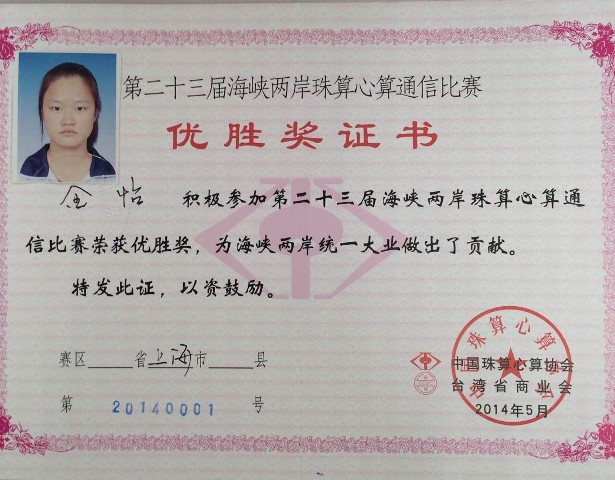 第二十三届海峡两岸珠算心算通信比赛
优胜奖证书
金怡 积极参加第二十三届海峡两岸珠算心算通
信比赛荣获优胜奖，为海峡两岸统一大业做出了贡献。
特发此证，以资鼓励。
赛区____省上海市____县
第 20140001 号
中国珠算心算协会
台湾省商业会
2014年5月